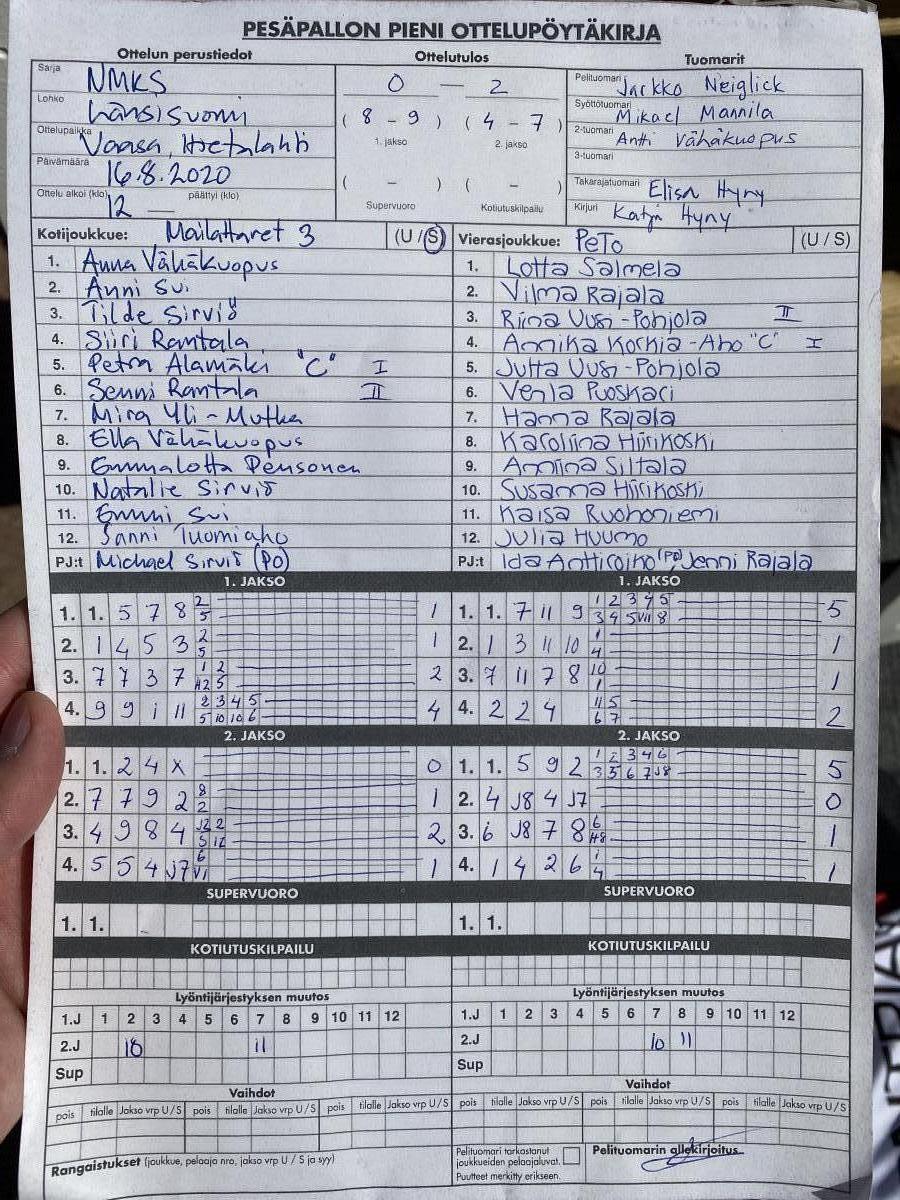 PESÄPALLON PIENI OTTELUPÖYTÄKIRJA
Ottelun perustiedot Ottelutulos Tuomarit
Sarja NMKS
Lohko Länsisuomi
Ottelupaikka Vaasa, Hietalahti
Päivämäärä 16.8.2020
Ottelu alkoi (klo) 12 päättyi (klo) —
0 — 2
( 8 - 9 ) ( 4 - 7 )
1. jakso 2. jakso
( - ) ( - )
Supervuoro Kotiutuskilpailu
Pelituomari Jarkko Neiglick
Syöttötuomari Mikael Mannila
2-tuomari Antti Vähäkuopus
3-tuomari
Takarajatuomari Elisa Hyny
Kirjuri Katja Hyny
Kotijoukkue: Mailattaret 3 (U / S)
1. Anna Vähäkuopus
2. Anni Sui
3. Tilde Sirviö
4. Siiri Rantala
5. Petra Alamäki "C" I
6. Senni Rantala II
7. Mira Yli-Mutka
8. Ella Vähäkuopus
9. Emmalotta Pensonen
10. Natalie Sirviö
11. Emmi Sui
12. Sanni Tuomiaho
PJ:t Michael Sirviö (PO)
Vierasjoukkue: PeTo (U / S)
1. Lotta Salmela
2. Vilma Rajala
3. Riina Uusi-Pohjola II
4. Annika Korkia-Aho "C" I
5. Jutta Uusi-Pohjola
6. Venla Puoskari
7. Hanna Rajala
8. Karoliina Hiirikoski
9. Anniina Siltala
10. Susanna Hiirikoski
11. Kaisa Ruohoniemi
12. Julia Huumo
PJ:t Ida Anttiroiko (PJ) Jenni Rajala
1. JAKSO
1. 1. 5 7 8 2 5 1
2. 1 4 5 3 2 5 1
3. 7 7 3 7 1 2 H2 5 2
4. 9 9 1 11 2 3 4 5 5 10 10 6 4
1. JAKSO
1. 1. 7 11 9 1 2 3 4 5 3 4 5 VII 8 5
2. 1 3 11 10 1 4 1
3. 7 11 7 8 10 1 1
4. 2 2 4 11 5 6 7 2
2. JAKSO
1. 1. 2 4 X 0
2. 7 7 9 2 8 2 1
3. 4 9 8 4 J2 2 5 12 2
4. 5 5 4 J7 6 V1 1
2. JAKSO
1. 1. 5 9 2 1 2 3 4 6 3 5 6 7 J8 5
2. 4 J8 4 J7 0
3. 6 J8 7 8 6 H8 1
4. 1 4 2 6 1 4 1
SUPERVUORO
1. 1.
SUPERVUORO
1. 1.
KOTIUTUSKILPAILU
KOTIUTUSKILPAILU
Lyöntijärjestyksen muutos
1.J 1 2 3 4 5 6 7 8 9 10 11 12
2.J 10 11
Sup
Lyöntijärjestyksen muutos
1.J 1 2 3 4 5 6 7 8 9 10 11 12
2.J 10 11
Sup
Vaihdot
pois tilalle Jakso vrp U/S pois tilalle Jakso vrp U/S pois tilalle Jakso vrp U/S
Vaihdot
pois tilalle Jakso vrp U/S pois tilalle Jakso vrp U/S pois tilalle Jakso vrp U/S
Rangaistukset (joukkue, pelaaja nro, jakso vrp U / S ja syy)
Pelituomari tarkastanut
joukkueiden pelaajaluvat.
Puutteet merkitty erikseen.
Pelituomarin allekirjoitus